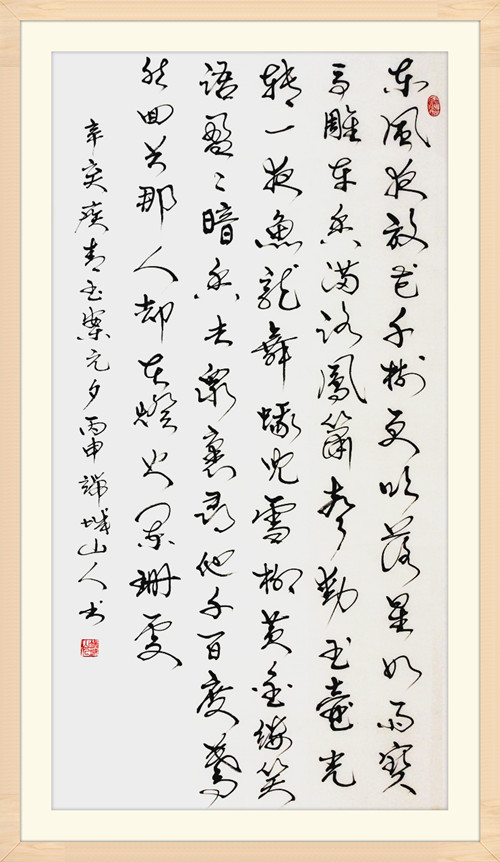 東風夜放花千樹更吹落星如雨寶
馬雕車香滿路鳳簫聲動玉壺光
轉一夜魚龍舞蛾兒雪柳黃金縷笑
語盈〻暗香去眾裏尋他千百度驀
然回首那人却在燈火闌珊處
辛棄疾青玉案元夕丙申端城山人书